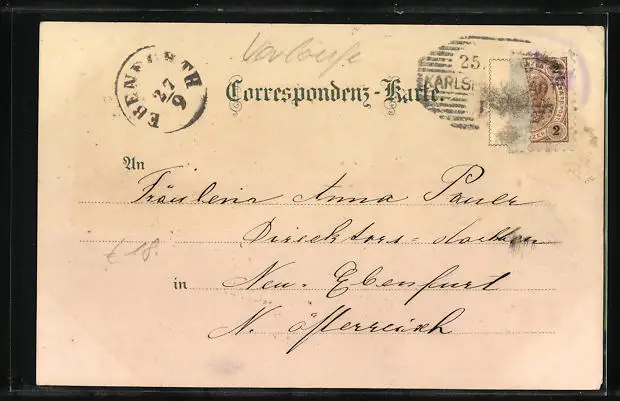 EBENFURTH
27
9
25.
KARLS
Correspondenz-Karte.
2
An
Fräulein Anna Pauer
Direktors-
in Neu. Ebenfurt
N. Österreich
£ 18.